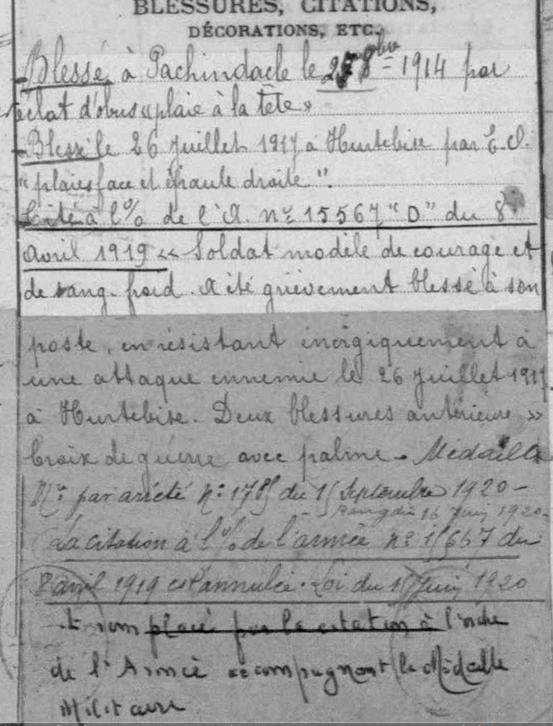 BLESSURES, CITATIONS,
DÉCORATIONS, ETC.
Blessé à Pachindaele le 1914 par
éclat d'obus « plaie à la tête »
Blessé le 26 juillet 1917 à Hurtebise par E.O.
"plaies face et épaule droite".
Cité à l'% de l'A. n° 15567 "D" du 8
avril 1919 « Soldat modèle de courage et
de sang-froid. A été grièvement blessé à son
poste, en résistant énergiquement à
une attaque ennemie le 26 juillet 1917
à Hurtebise. Deux blessures antérieures »
Croix de guerre avec palme. Médaille
Mre par arrêté n° du 15 Septembre 1920 -
Rang du 16 Juin 1920 -
La citation à l'% de l'armée n° 15567 du
8 avril 1919 est annulée. Loi du Juin 1920
et remplacé par la citation à l'ordre
de l'Armée accompagnant la Médaille
Militaire